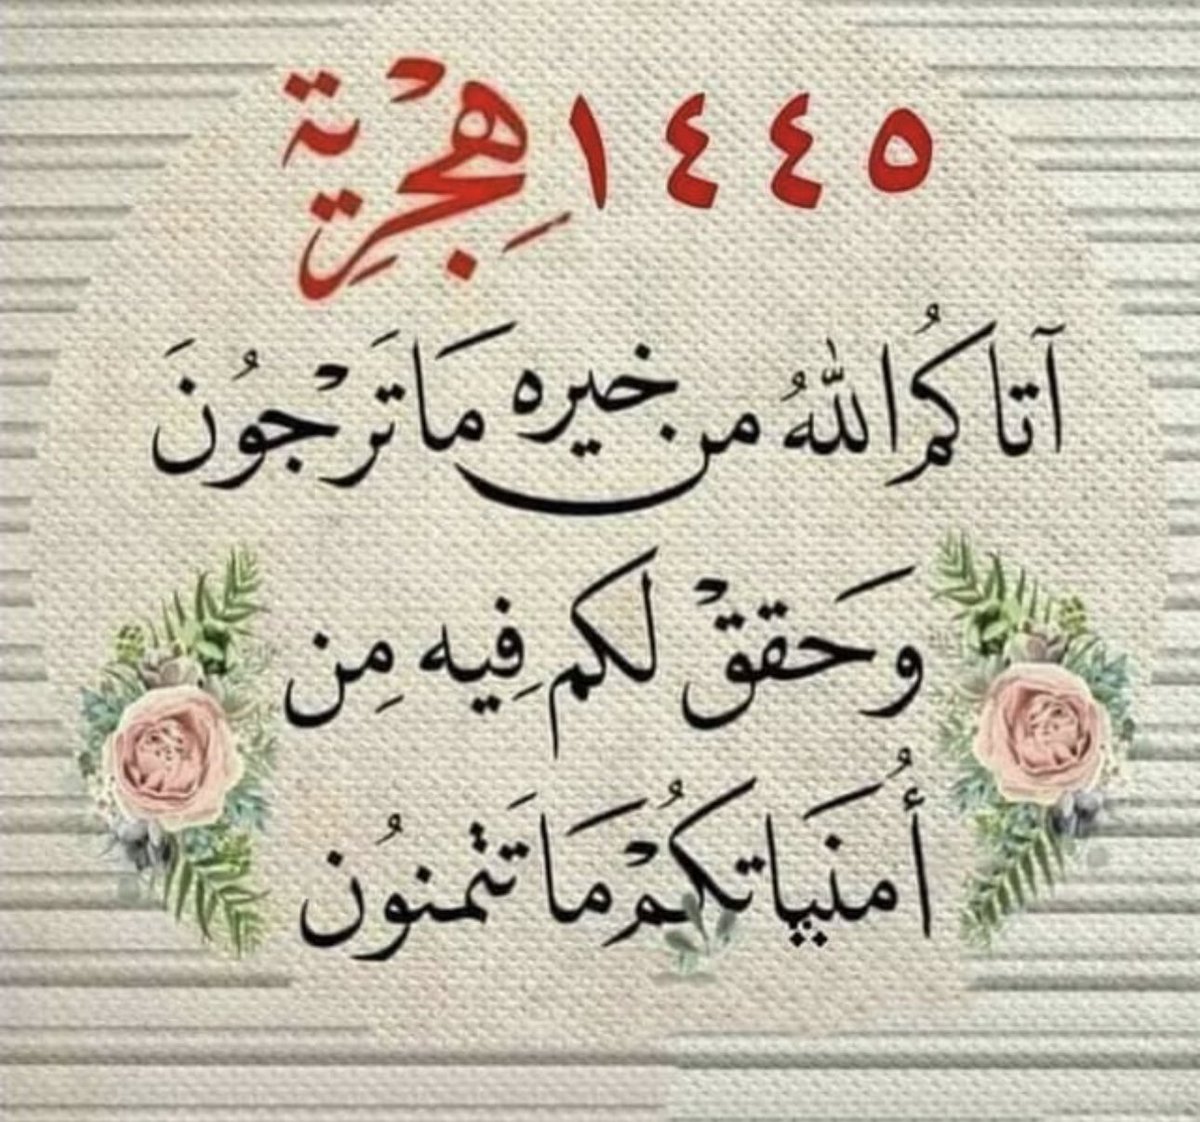 ١٤٤٥ هِجْرِية
آتاكُم اللهُ من خيره مَا تَرْجُونَ
وحَققْ لكم فِيه مِن
أُمنيَاتكُمْ مَا تَتمنوُن